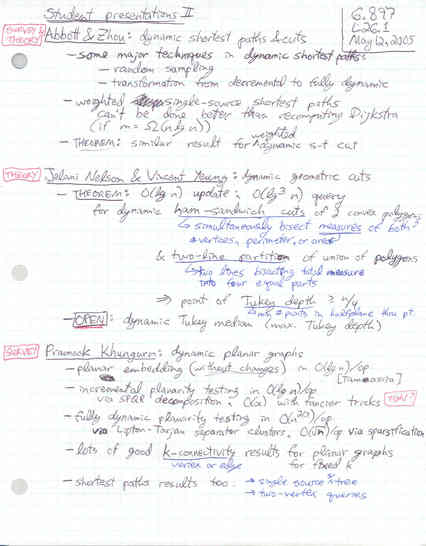 Student presentations II
6.897
L26.1
May 12, 2005
SURVEY & THEORY
Abbott & Zhou: dynamic shortest paths & cuts
- some major techniques in dynamic shortest paths:
- random sampling
- transformation from decremental to fully dynamic
- weighted single-source shortest paths
can't be done better than recomputing Dijkstra
(if m = Ω(n lg n))
- THEOREM: similar result for weighted dynamic s-t cut
THEORY
Jelani Nelson & Vincent Yeung: dynamic geometric cuts
- THEOREM: O(lg n) update, O(lg³ n) query
for dynamic ham-sandwich cuts of 2 convex polygons
↳ simultaneously bisect measures of both
vertices, perimeter, or area
& two-line partition of union of polygons
↳ two lines bisecting total measure
into four equal parts
⇒ point of Tukey depth ≥ n/4
↳ min. # points in halfplane thru pt.
- OPEN: dynamic Tukey median (max. Tukey depth)
SURVEY
Pramook Khungurn: dynamic planar graphs
- planar embedding (without changes) in O(lg n)/op
[Tamassia]
- incremental planarity testing in O(lg n)/op
via SPQR decomposition; O(α) with fancier tricks
- fully dynamic planarity testing in
via Lipton-Tarjan separator clusters, O(√n)/op via sparsification
- lots of good k-connectivity results for planar graphs
vertex or edge
for fixed k
- shortest paths results too:
→ single source tree
→ two-vertex queries